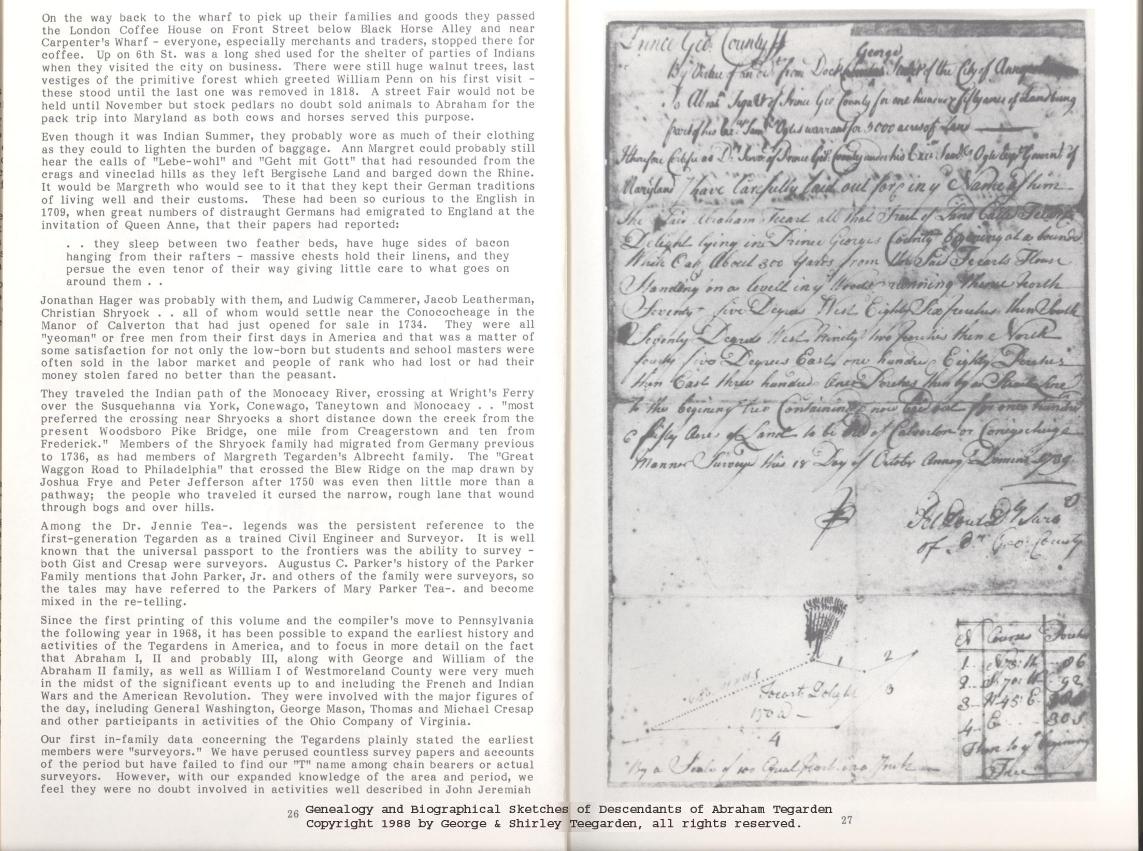 On the way back to the wharf to pick up their families and goods they passed
the London Coffee House on Front Street below Black Horse Alley and near
Carpenter's Wharf - everyone, especially merchants and traders, stopped there for
coffee. Up on 6th St. was a long shed used for the shelter of parties of Indians
when they visited the city on business. There were still huge walnut trees, last
vestiges of the primitive forest which greeted William Penn on his first visit -
these stood until the last one was removed in 1818. A street Fair would not be
held until November but stock pedlars no doubt sold animals to Abraham for the
pack trip into Maryland as both cows and horses served this purpose.
Even though it was Indian Summer, they probably wore as much of their clothing
as they could to lighten the burden of baggage. Ann Margret could probably still
hear the calls of "Lebe-wohl" and "Geht mit Gott" that had resounded from the
crags and vineclad hills as they left Bergische Land and barged down the Rhine.
It would be Margreth who would see to it that they kept their German traditions
of living well and their customs. These had been so curious to the English in
1709, when great numbers of distraught Germans had emigrated to England at the
invitation of Queen Anne, that their papers had reported:
. . they sleep between two feather beds, have huge sides of bacon
hanging from their rafters - massive chests hold their linens, and they
persue the even tenor of their way giving little care to what goes on
around them . .
Jonathan Hager was probably with them, and Ludwig Cammerer, Jacob Leatherman,
Christian Shryock . . all of whom would settle near the Conococheage in the
Manor of Calverton that had just opened for sale in 1734. They were all
"yeoman" or free men from their first days in America and that was a matter of
some satisfaction for not only the low-born but students and school masters were
often sold in the labor market and people of rank who had lost or had their
money stolen fared no better than the peasant.
They traveled the Indian path of the Monocacy River, crossing at Wright's Ferry
over the Susquehanna via York, Conewago, Taneytown and Monocacy . . "most
preferred the crossing near Shryocks a short distance down the creek from the
present Woodsboro Pike Bridge, one mile from Creagerstown and ten from
Frederick." Members of the Shryock family had migrated from Germany previous
to 1736, as had members of Margreth Tegarden's Albrecht family. The "Great
Waggon Road to Philadelphia" that crossed the Blew Ridge on the map drawn by
Joshua Frye and Peter Jefferson after 1750 was even then little more than a
pathway; the people who traveled it cursed the narrow, rough lane that wound
through bogs and over hills.
Among the Dr. Jennie Tea-. legends was the persistent reference to the
first-generation Tegarden as a trained Civil Engineer and Surveyor. It is well
known that the universal passport to the frontiers was the ability to survey -
both Gist and Cresap were surveyors. Augustus C. Parker's history of the Parker
Family mentions that John Parker, Jr. and others of the family were surveyors, so
the tales may have referred to the Parkers of Mary Parker Tea-. and become
mixed in the re-telling.
Since the first printing of this volume and the compiler's move to Pennsylvania
the following year in 1968, it has been possible to expand the earliest history and
activities of the Tegardens in America, and to focus in more detail on the fact
that Abraham I, II and probably III, along with George and William of the
Abraham II family, as well as William I of Westmoreland County were very much
in the midst of the significant events up to and including the French and Indian
Wars and the American Revolution. They were involved with the major figures of
the day, including General Washington, George Mason, Thomas and Michael Cresap
and other participants in activities of the Ohio Company of Virginia.
Our first in-family data concerning the Tegardens plainly stated the earliest
members were "surveyors." We have perused countless survey papers and accounts
of the period but have failed to find our "T" name among chain bearers or actual
surveyors. However, with our expanded knowledge of the area and period, we
feel they were no doubt involved in activities well described in John Jeremiah
26
Geo. County
George
By Virtue of an from of the City of
of Prince Geo County for one hundred fifty acres of Land being
part of his warrant for 3000 acres of Land
of Prince Geo. County
Maryland have Carefully laid out for in y Name of him
The Said Abraham all that Tract of Land
Delight lying in Prince Georges County Begining at a bounded
White Oak About 300 Yards from the Said House
Standing on a levell in y Woods running thence North
Seventy five Degrees West Eighty Six perches then South
Seventy Degrees West Ninety two perches then North
fourty five Degrees East one hundred Eighty Perches
then East three hundred Perches then by a Straite Line
to the begining tree Containing & now laid out for one hundred
& fifty Acres of Land to be of Calverton or
Mannor Surveyd this 18 Day of October 1739
of County
1
2
3
4
150 a
N Courses
1
2
3 N 45 E
4 E
Then to y begining
Tree
By a Scale of 100 Equal parts in a Inch
27
Genealogy and Biographical Sketches of Descendants of Abraham Tegarden
Copyright 1988 by George & Shirley Teegarden, all rights reserved.